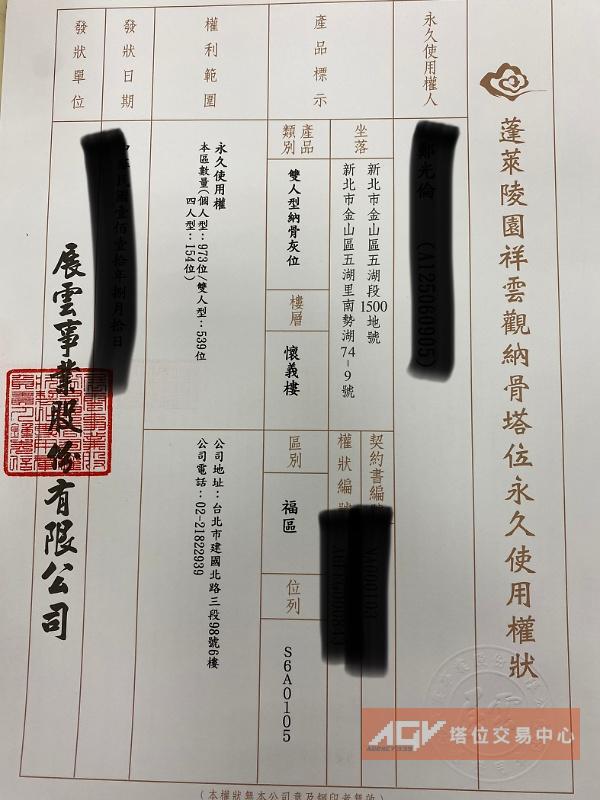 蓬萊陵園祥雲觀納骨塔位永久使用權狀
永久使用權人
產品標示
坐落
新北市金山區五湖段1500地號
新北市金山區五湖里南勢湖74-9號
契約書編號
權狀編號
產品類別
雙人型納骨灰位
樓層
懷義樓
區別
福區
位列
S6A0105
權利範圍
永久使用權
本區數量(個人型:973位/雙人型:539位
四人型:154位)
公司地址:台北市建國北路三段98號6樓
公司電話:02-21822939
發狀日期
發狀單位
展雲事業股份有限公司
AGV 塔位交易中心